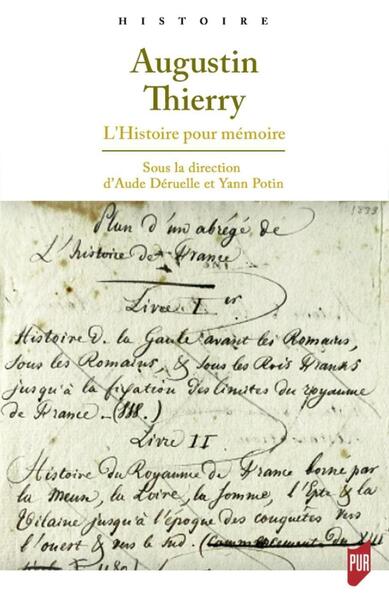 HISTOIRE
Augustin
Thierry
L'Histoire pour mémoire
Sous la direction
d'Aude Déruelle et Yann Potin
1838
Plan d'un abrégé de
L'histoire de France
Livre Ier
Histoire d. la Gaule avant les Romains,
sous les Romains, & sous les Rois Franks
jusqu'à la fixation des limites du royaume
de France – (888.)
Livre II
Histoire du Royaume de France borné par
la Meuse, la Loire, la Somme, l'Epte & la
Vilaine jusqu'à l'époque des conquêtes vers
l'ouest & vers le sud. (Commencement du XIII
PUR